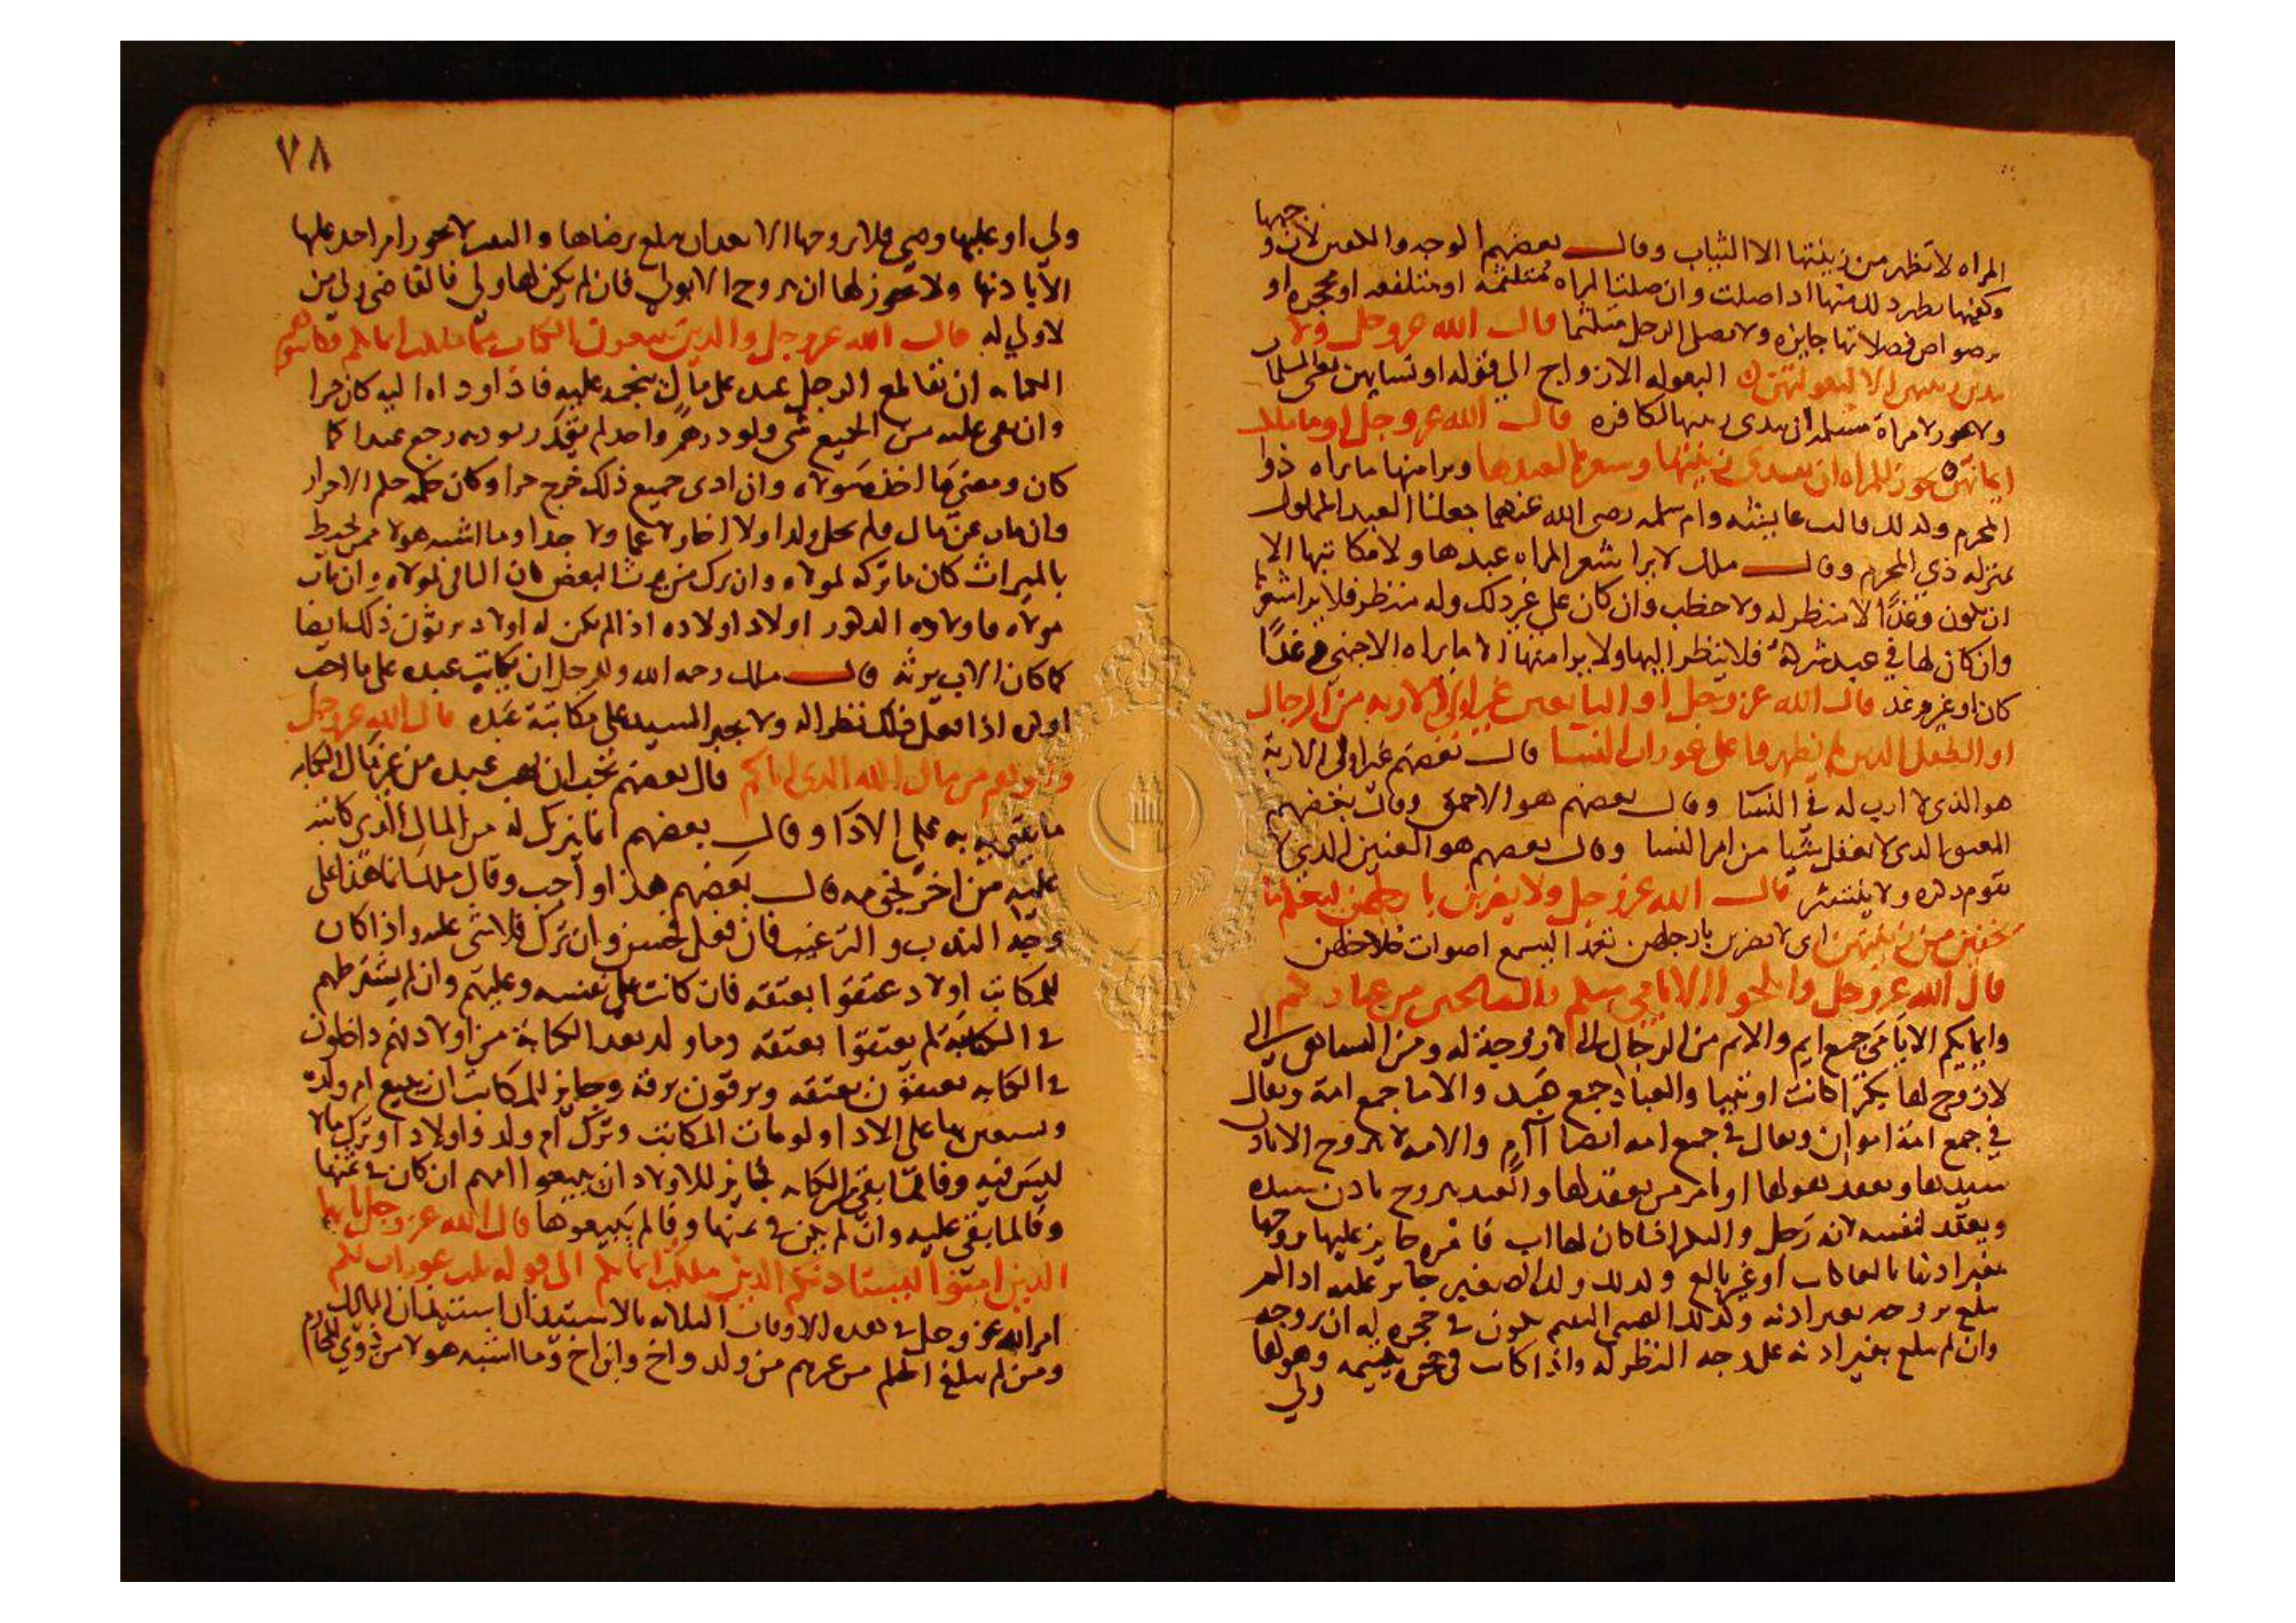 المراه لا تظهر من زينتها الا الثياب وقال بعضهم الوجه والكفين لان وجهها
وكفيها يظهر ذلك منها اذا صلت وان صلت المراه متلثمه او متلفعه او محجره او
فصلاتها جايزه ولا يصلي الرجل متلثما قال الله عز وجل ولا
يبدين زينتهن الا لبعولتهن البعوله الازواج الي قوله او نسايهن يعني المسلمات
ولا يجوز لامراة مسلمه ان تبدي زينتها لكافره قال الله عز وجل او ما ملكت
ايمانهن يجوز للمراه ان تبدي زينتها وشعرها لعبدها ويرا منها ما يراه ذوا
المحرم ولذلك قالت عايشه وام سلمه رضي الله عنهما جعلنا العبد المملوك
بمنزله ذي المحرم وقال ملك لا يرا شعر المراه عبدها ولا مكاتبها الا
ان يكون وغدا لا منظر له ولا خطب وان كان علي غير ذلك وله منظر فلا يرا شعرها
وان كان لها في عبد شرك فلا ينظر اليها ولا يرا منها الا ما يراه الاجنبي وغدا
كان او غير وغد قال الله عز وجل او التابعين غير اولي الاربه من الرجال
او الطفل الذين لم يظهروا على عورات النسا قال بعضهم غير اولى الاربة
هو الذي لا ارب له في النسا وقال بعضهم هو الاحمق وقال بعضهم
المعتوه الذي لا يعقل شيا من امر النسا وقال بعضهم هو العنين الذي لا
يقوم ذكره ولا ينتشر قال الله عز وجل ولا يضربن بارجلهن ليعلم ما
يخفين من زينتهن اى لا يضربن بارجلهن ليسمع اصوات خلاخلهن
قال الله عز وجل وانكحوا الايامي منكم والصالحين من عبادكم
وامايكم الايامي جمع ايم والايم من الرجال الذي لا زوجة له ومن النسا التي
لا زوج لها بكرا كانت او ثيبا والعباد جمع عبد والاما جمع امة ويقال
في جمع امة اموان ويقال في جمع امه ايضا اآم والامه لا تزوج الا باذن
سيدها ويعقد نكاحها او يامر من يعقد لها والعبد يتزوج باذن سيده
ويعقد لنفسه لانه رجل والبكر اذا كان لها اب فامره جايز عليها يزوجها
بغير اذنها بالغا كانت او غير بالغ وكذلك ولد الصغير جايز عليه اذا لم
يبلغ يزوجه بغير اذنه وكذلك الصبي اليتيم يكون في حجره له ان يزوجه
وان لم يبلغ بغير اذنه على وجه النظر له واذا كانت في حجره يتيمه وهو لها
ولي
٧٨
ولي او عليها وصي فلا يزوجها الا بعد ان تبلغ برضاها والثيب لا يجوز امر احد عليها
الا باذنها ولا يجوز لها ان تزوج الا بولي فان لم يكن لها ولي فالقاضي ولي من
لا ولي له قال الله عز وجل والذين يبتغون الكتاب مما ملكت ايمانكم فكاتبوهم
الكتابه ان يقاطع الرجل عبده على مال ينجمه عليه فاذا وداه اليه كان حرا
وان بقي عليه من الجميع شي ولو درهم واحد لم يقدر يوديه رجع عبدا كما
كان ومضي ما اخذ مولاه وان ادى جميع ذلك خرج حرا وكان حكمه حكم الاحرار
فان مات عن مال ولم يخلف ولدا ولا اخا ولا عما ولا جدا وما اشبه هولا ممن يحيط
بالميراث كان ما تركه لمولاه وان ترك من يرث البعض كان الباقي لمولاه وان مات
مولاه فاولاده الذكور اولاد اولاده اذا لم يكن له اولاد يرثون ذلك ايضا
كما كان الاب يرثه قال ملك رحمه الله وللرجل ان يكاتب عبده على ما احب
اذا فعل ذلك نظرا له ولا يجبر السيد على مكاتبة عبده قال الله عز وجل
واتوهم من مال الله الذي اتاكم قال بعضهم يجب ان يهب عبده من غير مال الكتابه
ما يقوي به علي الادا وقال بعضهم انما ينزل له من المال الذي كاتبه
عليه من اخر نجومه قال بعضهم هذا واجب وقال ملك انما هذا على
وجه الندب والترغيب فان فعل فحسن وان ترك فلا شي عليه واذا كان
للمكاتب اولاد عتقوا بعتقه فان كاتب على نفسه وعليهم وان لم يشترطهم
في الكتابة لم يعتقوا بعتقه وما ولد بعد الكتابة من اولاد فهم داخلون
في الكتابه يعتقون بعتقه ويرقون برقه وجايز للمكاتب ان يبيع ام ولده
ويستعين بها على الادا ولو مات المكاتب وترك ام ولد واولادا وترك مالا
ليس فيه وفا لما بقي من الكتابه فجايز للاولاد ان يبيعوا امهم ان كان في ثمنها
وفا لما بقي عليه وان لم يكن في ثمنها وفا لم يبيعوها قال الله عز وجل يا ايها
الذين امنوا ليستاذنكم الذين ملكت ايمانكم الى قوله ثلث عورات لكم
امر الله عز وجل في هذه الاوقات الثلاثه بالاستيذان استيذان المماليك
ومن لم يبلغ الحلم من غيرهم من ولد واخ وابن اخ وما اشبه هولا من ذوي المحارم